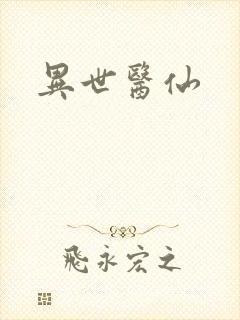 異世醫仙
飛永宏之